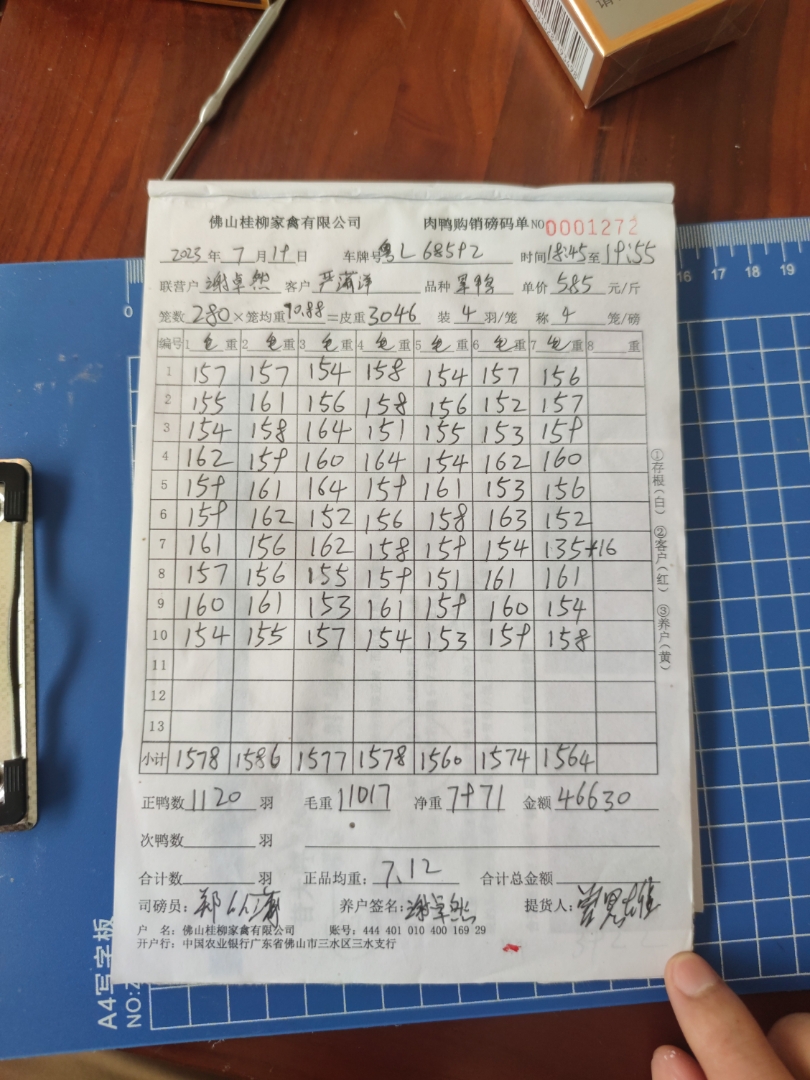 佛山桂柳家禽有限公司 肉鸭购销磅码单 NO 0001272
2023年 7月19日 车牌号粤L 68592 时间18:45至19:55
联营户谢卓然 客户 品种 单价 5.85 元/斤
笼数 280 ×笼均重 10.88 =皮重 3046 装 4 羽/笼 称 4 笼/磅
编号 1 毛 重 2 毛 重 3 毛 重 4 毛 重 5 毛 重 6 毛 重 7 毛 重 8 重
1 157 157 154 158 154 157 156
2 155 161 156 158 156 152 157
3 154 158 164 151 155 153 159
4 162 159 160 164 154 162 160
5 159 161 164 159 161 153 156
6 159 162 152 156 158 163 152
7 161 156 162 158 159 154 135+16
8 157 156 155 159 151 161 161
9 160 161 153 161 159 160 154
10 154 155 157 154 153 159 158
11
12
13
小计 1578 1586 1577 1578 1560 1574 1564
正鸭数 1120 羽 毛重 11017 净重 7971 金额 46630
次鸭数 羽
合计数 羽 正品均重: 7.12 合计总金额
司磅员: 养户签名: 谢卓然 提货人:
户 名: 佛山桂柳家禽有限公司 账号: 444 401 010 400 169 29
开户行: 中国农业银行广东省佛山市三水区三水支行
①存根(白) ②客户(红) ③养户(黄)
A4写字板
NO:
0
16 17 18 19